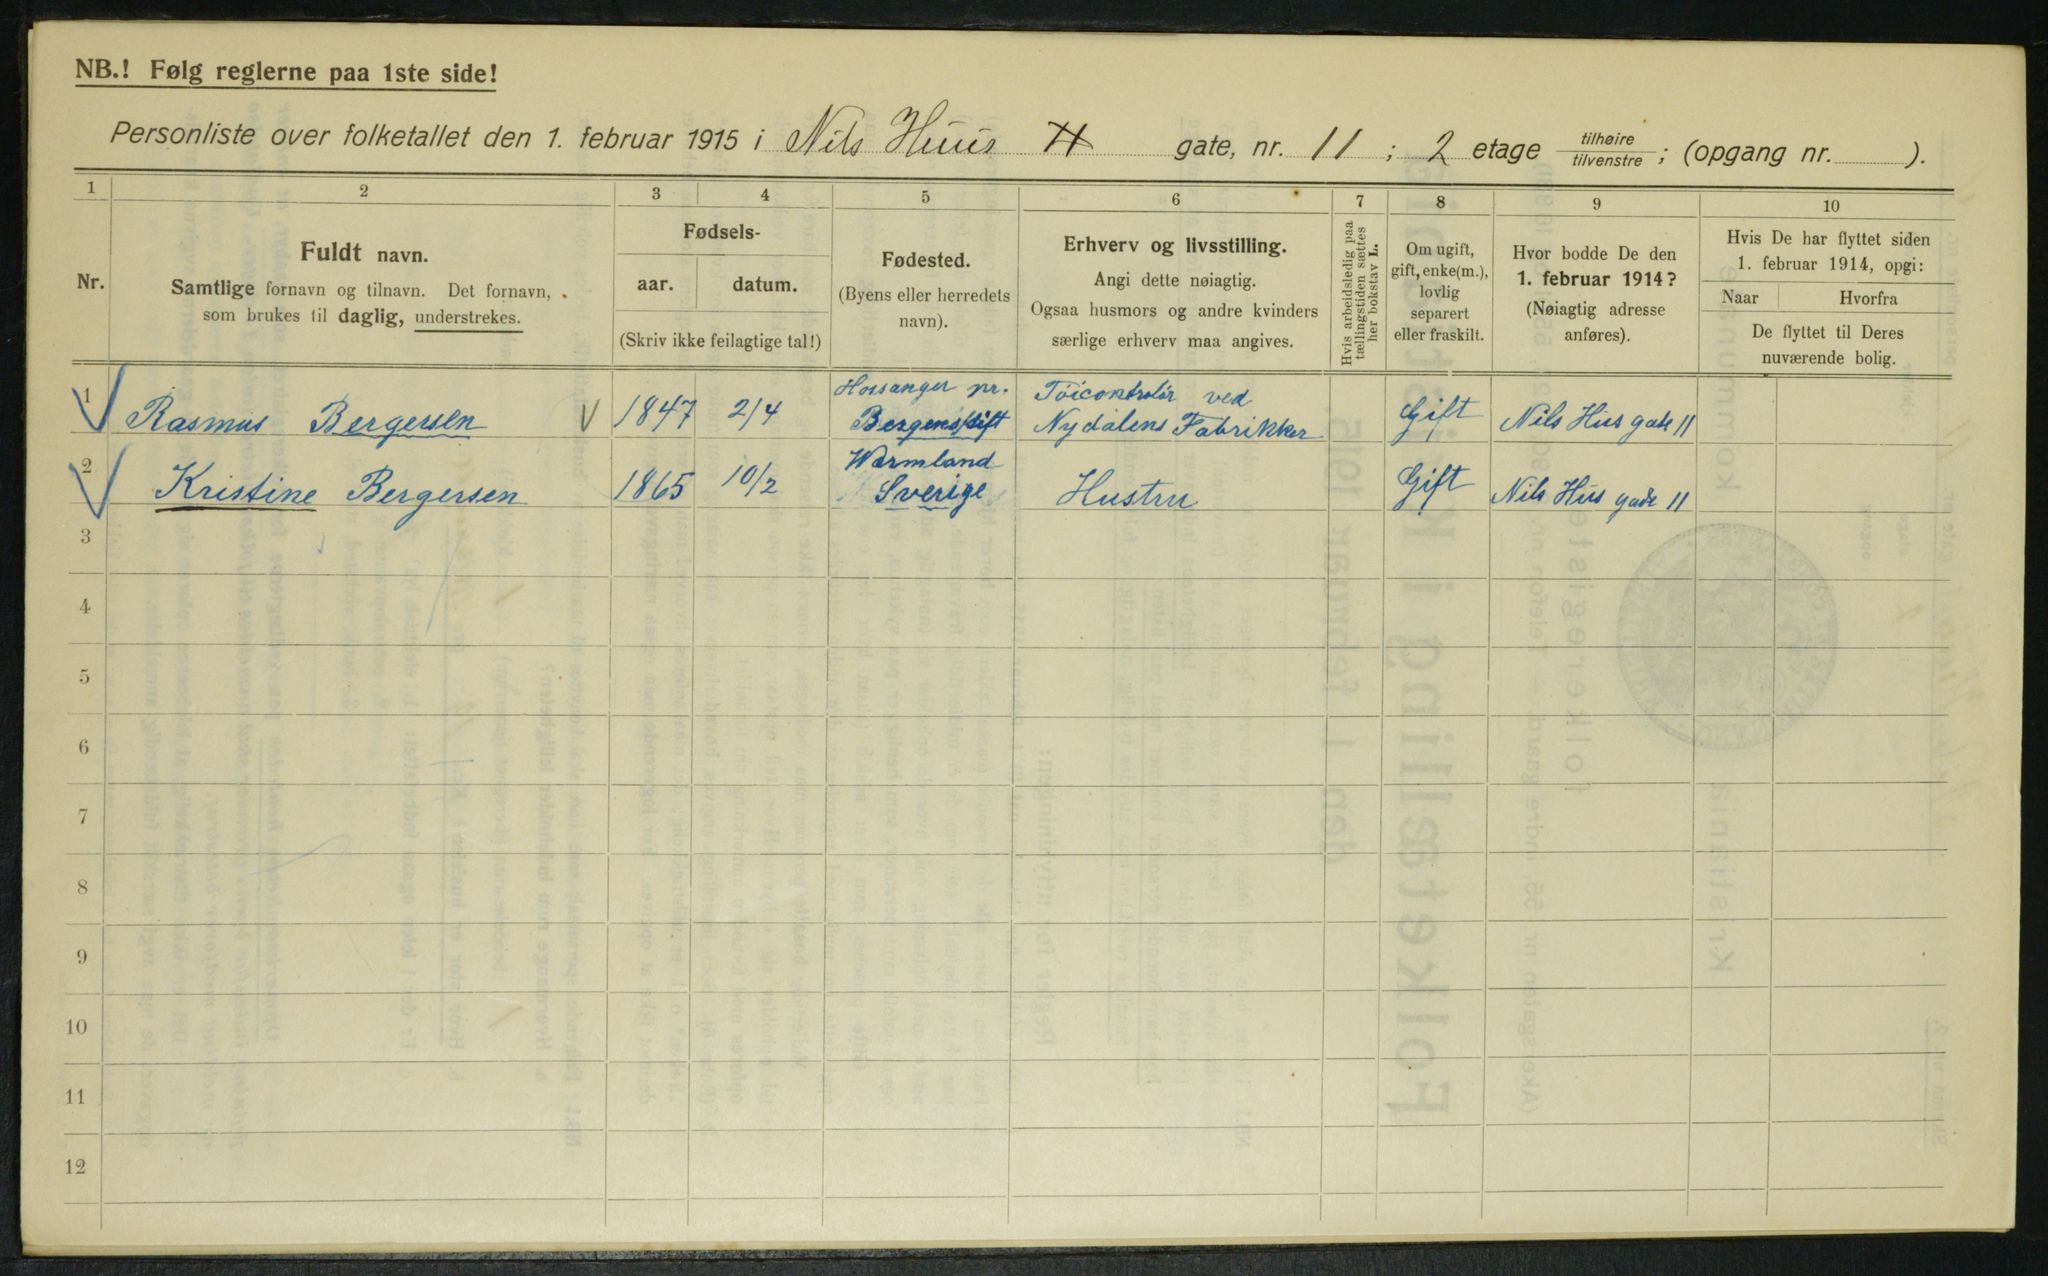 NB.! Følg reglerne paa 1ste side!
Personliste over folketallet den 1. februar 1915 i Nils Huus gate, nr. 11 ; 2 etage tilhøire tilvenstre ; (opgang nr. ).
1 2 3 4 5 6 7 8 9 10
Nr.
Fuldt navn.
Samtlige fornavn og tilnavn. Det fornavn,
som brukes til daglig, understrekes.
Fødsels-
aar. datum.
(Skriv ikke feilagtige tal!)
Fødested.
(Byens eller herredets
navn).
Erhverv og livsstilling.
Angi dette nøiagtig.
Ogsaa husmors og andre kvinders
særlige erhverv maa angives.
Hvis arbeidsledig paa
tællingstiden sættes
her bokstav L.
Om ugift,
gift, enke(m.),
lovlig
separert
eller fraskilt.
Hvor bodde De den
1. februar 1914?
(Nøiagtig adresse
anføres).
Hvis De har flyttet siden
1. februar 1914, opgi:
Naar Hvorfra
De flyttet til Deres
nuværende bolig.
1 Rasmus Bergersen 1847 2/4 Hosanger pr. Bergens stift Töicontrolör ved Nydalens Fabrikker Gift Nils Hus gade 11
2 Kristine Bergersen 1865 10/2 Wermland Sverige Hustru Gift Nils Hus gade 11
3
4
5
6
7
8
9
10
11
12